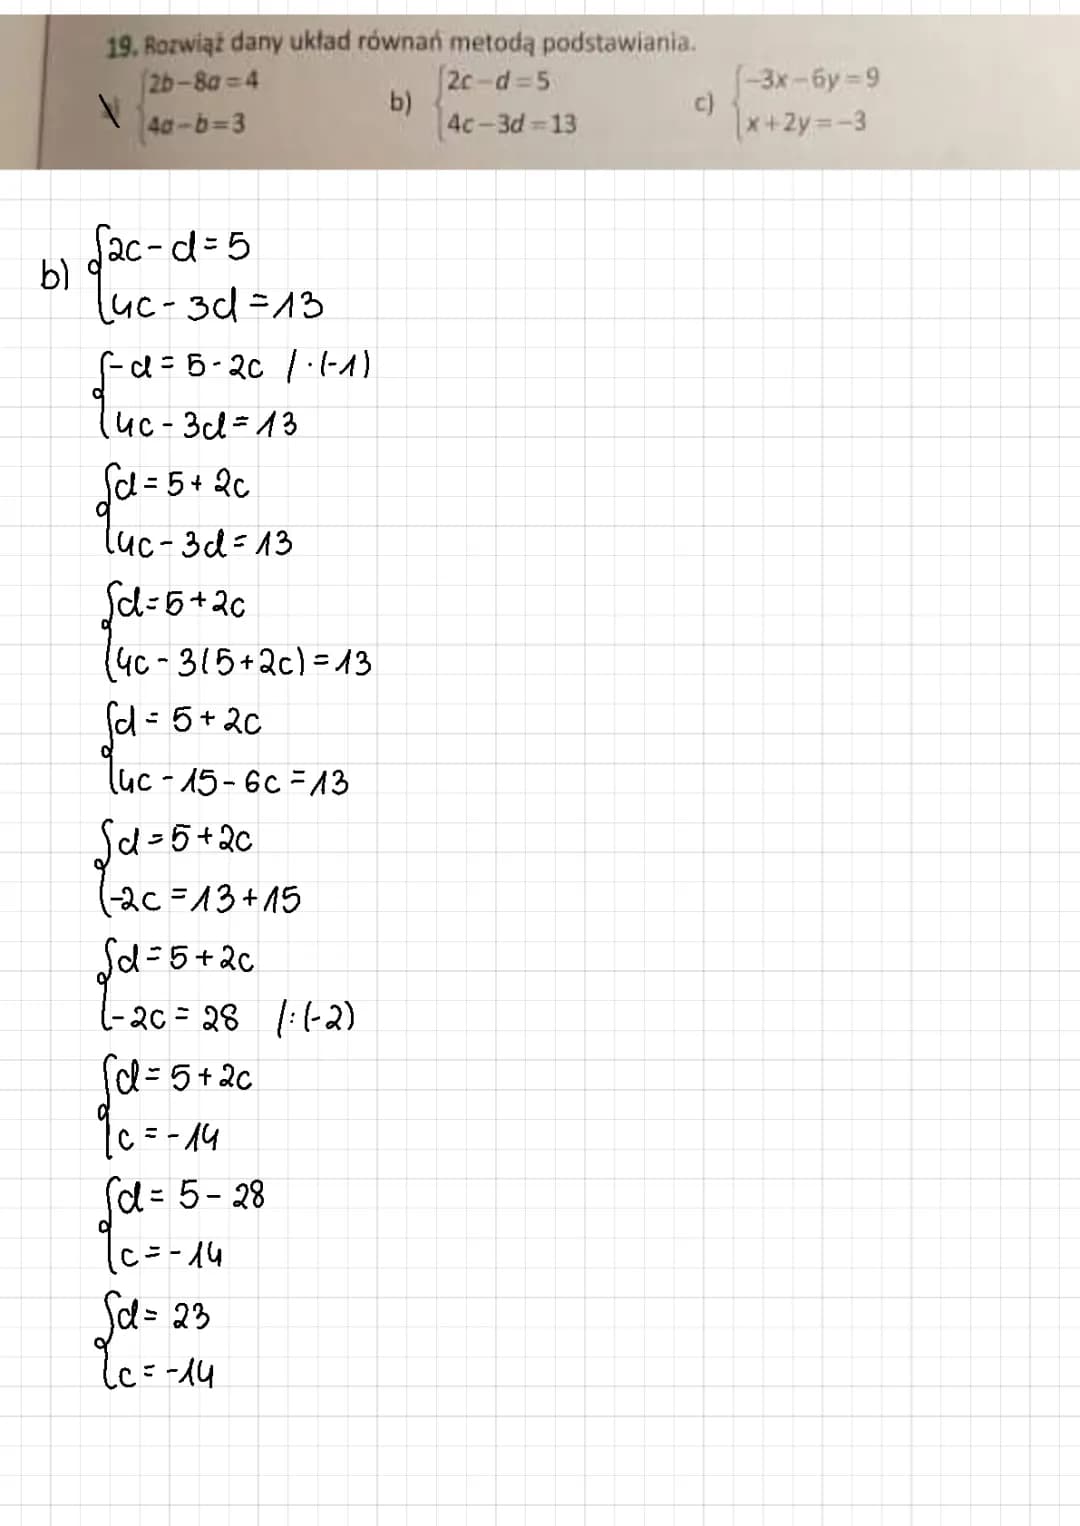 19. Rozwiąż dany układ równań metodą podstawiania.
2b-8a=4
4a-b=3
b) 2c-d=5
4c-3d=13
c) -3x-6y=9
x+2y=-3
b) 2c-d=5
4c-3d=13
-d=5-2c /·(-1)
4c-3d=13
d=5+2c
4c-3d=13
d=5+2c
4c-3(5+2c)=13
d=5+2c
4c-15-6c=13
d=5+2c
-2c=13+15
d=5+2c
-2c=28 /:(-2)
d=5+2c
c=-14
d=5-28
c=-14
d=23
c=-14